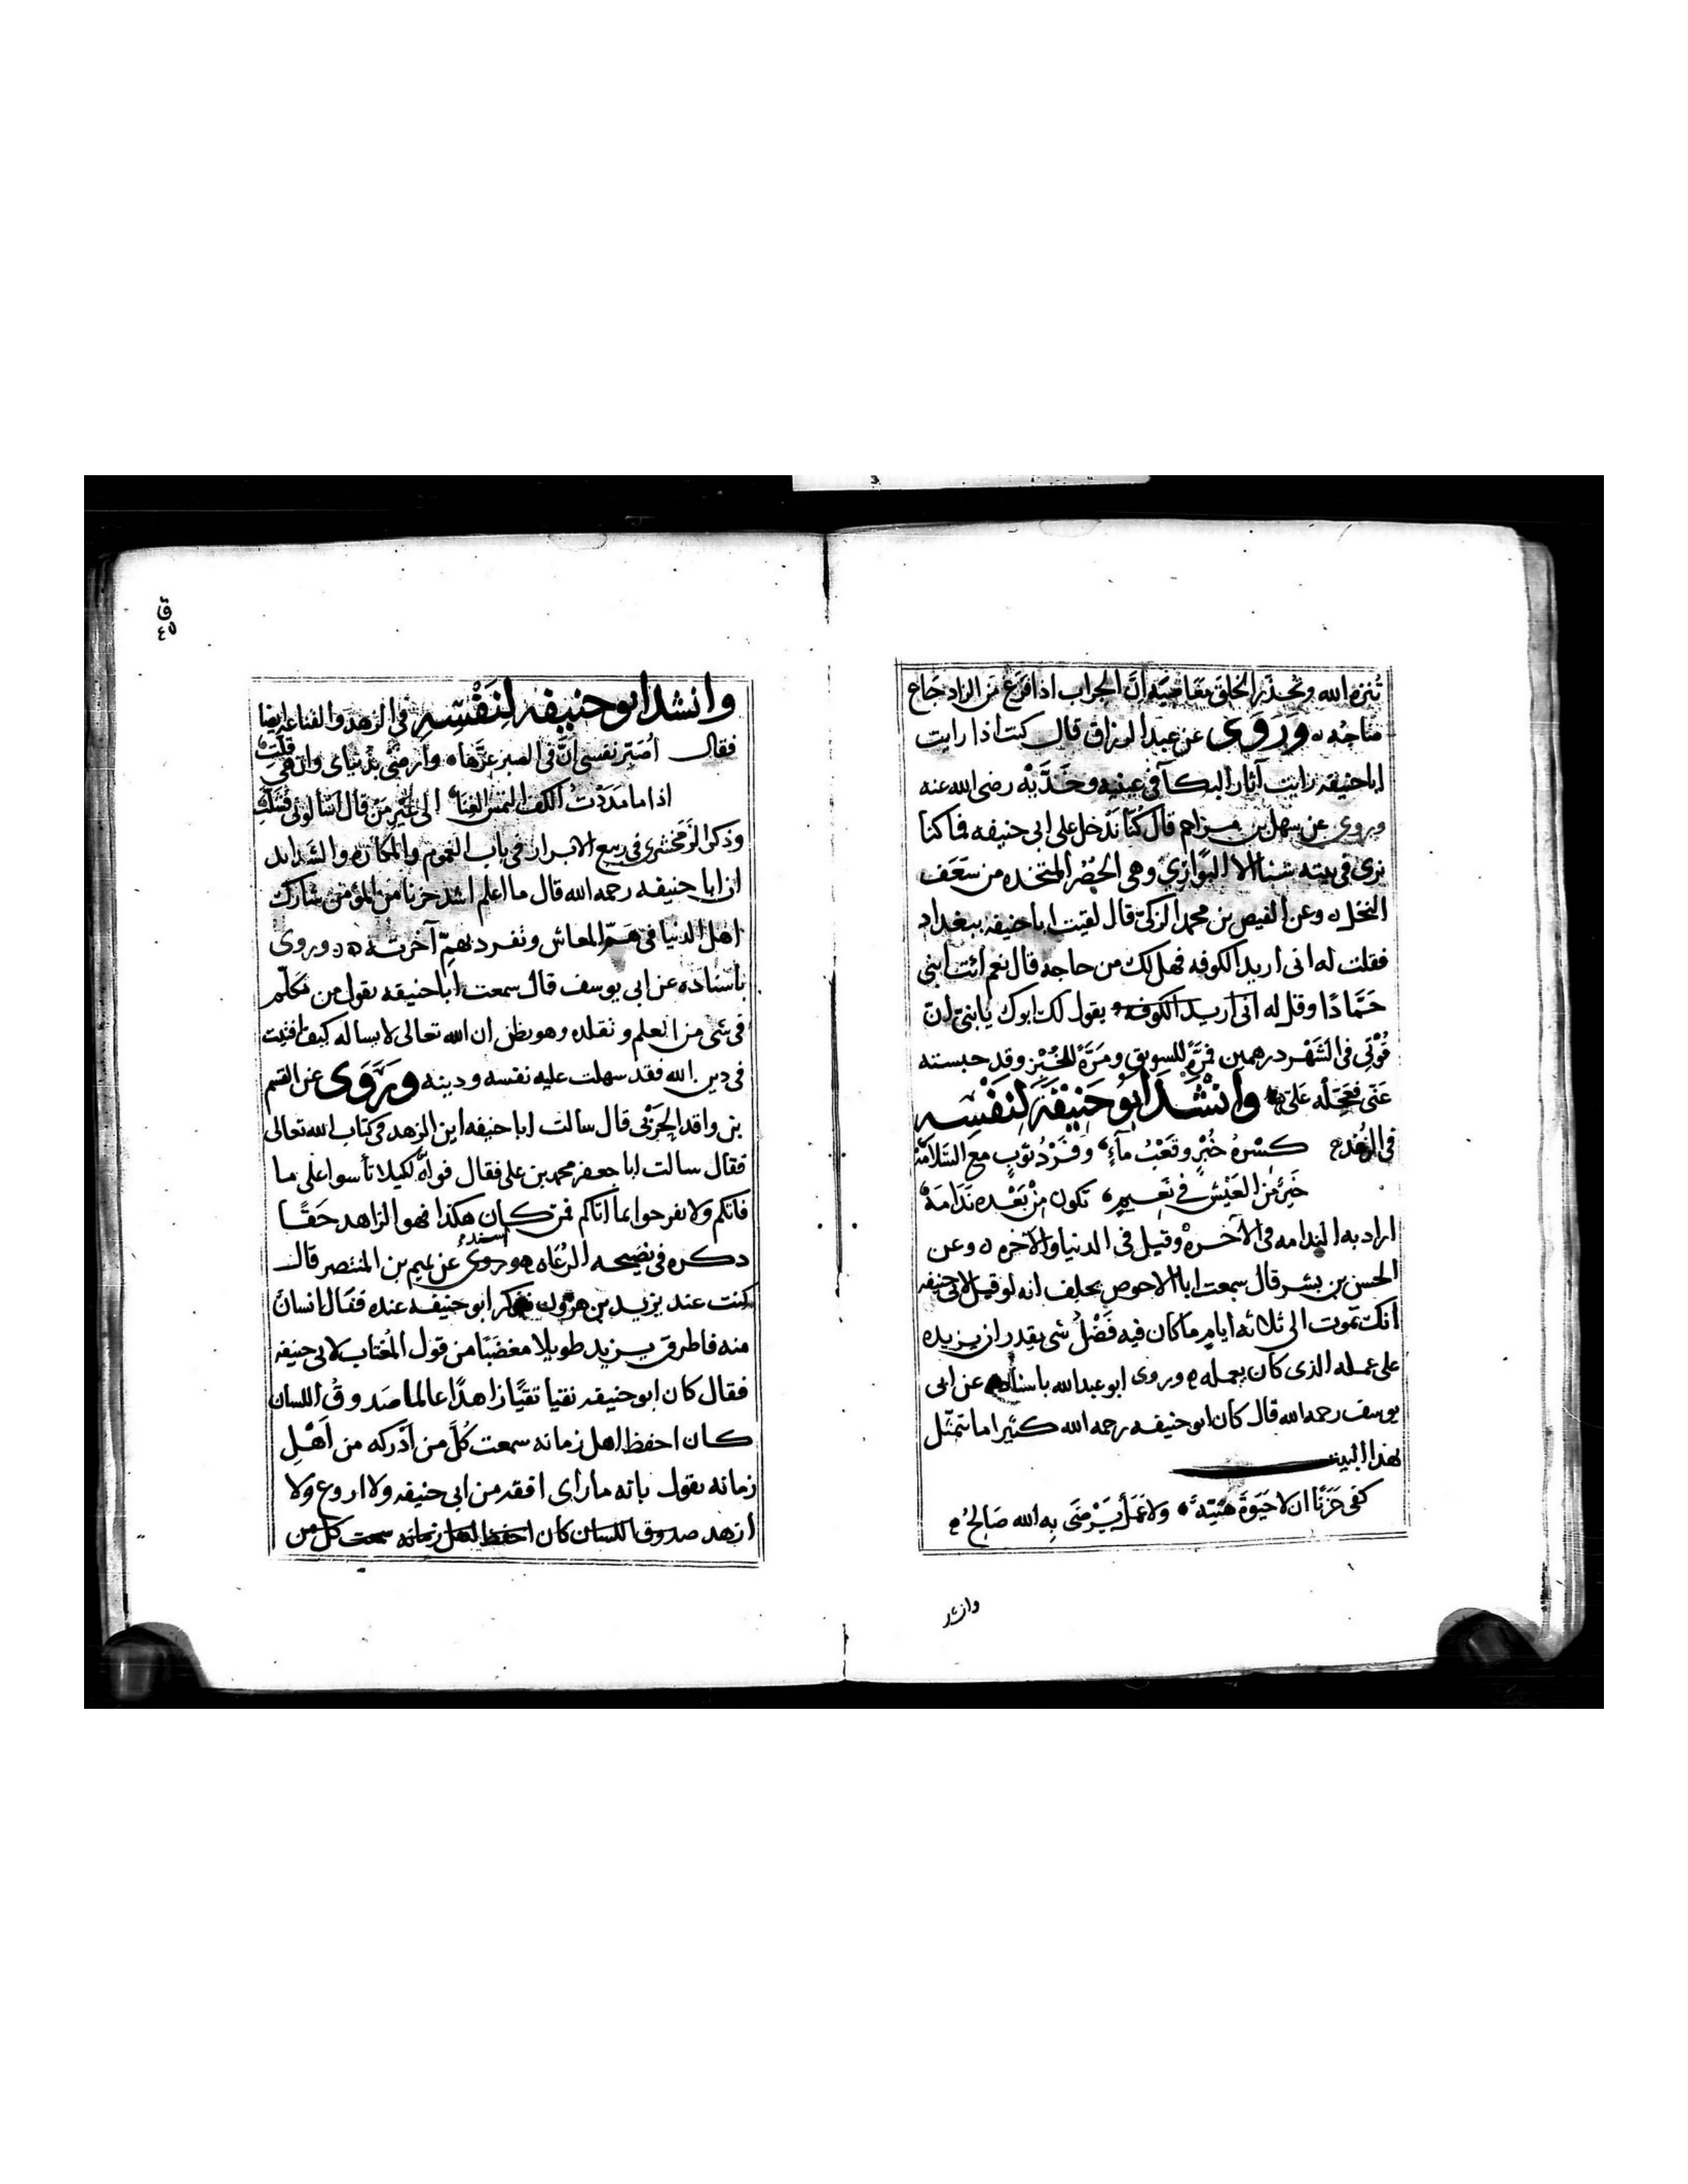 تنزه الله وتحذر الخلق بغا ان الجراب اذا فرغ من الزاد جاع
صاحبه ه وروى عن عبد الرزاق قال كنت اذا رايت
ابا حنيفه رايت آثار البكآ في عينيه وخدّيه رضى الله عنه
ويروى عن سهل بن مزاحم قال كنا ندخل على ابى حنيفه فما كنا
نرى فى بيته شيئا الا البوارى وهى الحصُر المتخذه من سَعَف
النخل ه وعن الفيض بن محمد الرَّقى قال لقيت ابا حنيفه ببغداد
فقلت له انى اريد الكوفه فهل لك من حاجه قال نعم ائت ابنى
حَمَّادًا وقل له انى اريد الكوفه يقول لك ابوك يا بنىّ ان
قُوْتِى فى الشَهْر درهمين فمرَّةً للسويق ومَرَّةً للخُبْزِ وقد حبسته
عَنّى فعَجّله عَلىّ وانْشَدَ ابُو حَنِيْفَةَ لِنَفْسِه
فى الزُهْد كسْرةُ خُبْزٍ وقَعْبُ مآءٍ وفَرْدُ ثوْبٍ مع السَّلامَهْ
خَيرٌ مِنَ العَيْشِ فى نَعِيمٍ تكون مِنْ بَعْدِه نَدَامَهْ
اراد به الندامه فى الآخره وقيل فى الدنيا والاخره ه وعن
الحسن بن بشر قال سمعت ابا الاحوص يحلف انه لو قيل لابى حنيفه
انك تموت الى ثلاثه ايام ما كان فيه فَضْلُ شى يقدر ان يزيده
على عمله الذى كان يعمله ه وروى ابو عبد الله باسناده عن ابى
يوسف رحمه الله قال كان ابو حنيفه رحمه الله كثيرا ما يتمثّل
بهذا البيت
كفى حَزَنًا ان لا حَيَوةً هَنيّةً ولا عَمَلٌ يَرْضَى به الله صَالحُ
وانشد
ق
٤٥
وانشد ابو حنيفه لِنَفْسِهِ فى الزهد والقناعه ايضا
فقال اُصَبّر نفسى انَّ فى الصبر عِزَّها وارضى بدنياى وان هى قلّتِ
اذا ما مدَدْتُ الكف التمس الغنا الى غير من قال اسالونى فشلّتِ
وذكر الزمخشرى فى ربيع الابرار فى باب الغموم والمكاره والشدايد
ان ابا حنيفه رحمه الله قال ما اعلم اشد حزنا من المؤمن شارك
اهل الدنيا فى هَمّ المعاش وتفرد بهمّ آخرته ه وروى
باسناده عن ابى يوسف قال سمعت ابا حنيفه يقول من تكلّم
فى شى من العلم وتقلده وهو يظن ان الله تعالى لا يساله كيف افتيت
فى دين الله فقد سهلت عليه نفسه ودينه وروى عن القسم
بن واقد الجَرمى قال سالت ابا حنيفه اين الزهد فى كتاب الله تعالى
فقال سالت ابا جعفر محمد بن على فقال قوله لكيلا تأسوا على ما
فاتكم ولا تفرحوا بما آتاكم فمن كان هكذا فهو الزاهد حَقًّا
ذكره فى نصيحه الرُعاه وروى بسنده عن تميم بن المنتصر قال
كنت عند يزيد بن هرون فذكر ابو حنيفه عنده فقال انسان
منه فاطرق يزيد طويلا مغضَبًا من قول المُغتاب لابى حنيفه
فقال كان ابو حنيفه نقيا تقيًا زاهدًا عالما صَدوقُ اللسان
كان احفظ اهل زمانه سمعت كُلَّ من اَدْركه من اَهْلِ
زمانه يقول بانه ما راى افقه من ابى حنيفه ولا اروع ولا
ازهد صدوق اللسان كان احفظ اهل زمانه سمعت كل من